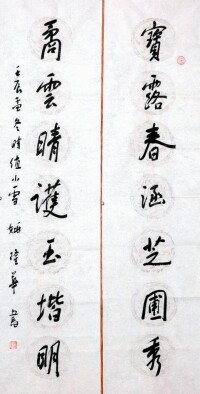 寶露春涵芝圃秀
矞雲晴護玉堦明
壬辰孟冬時值小雪